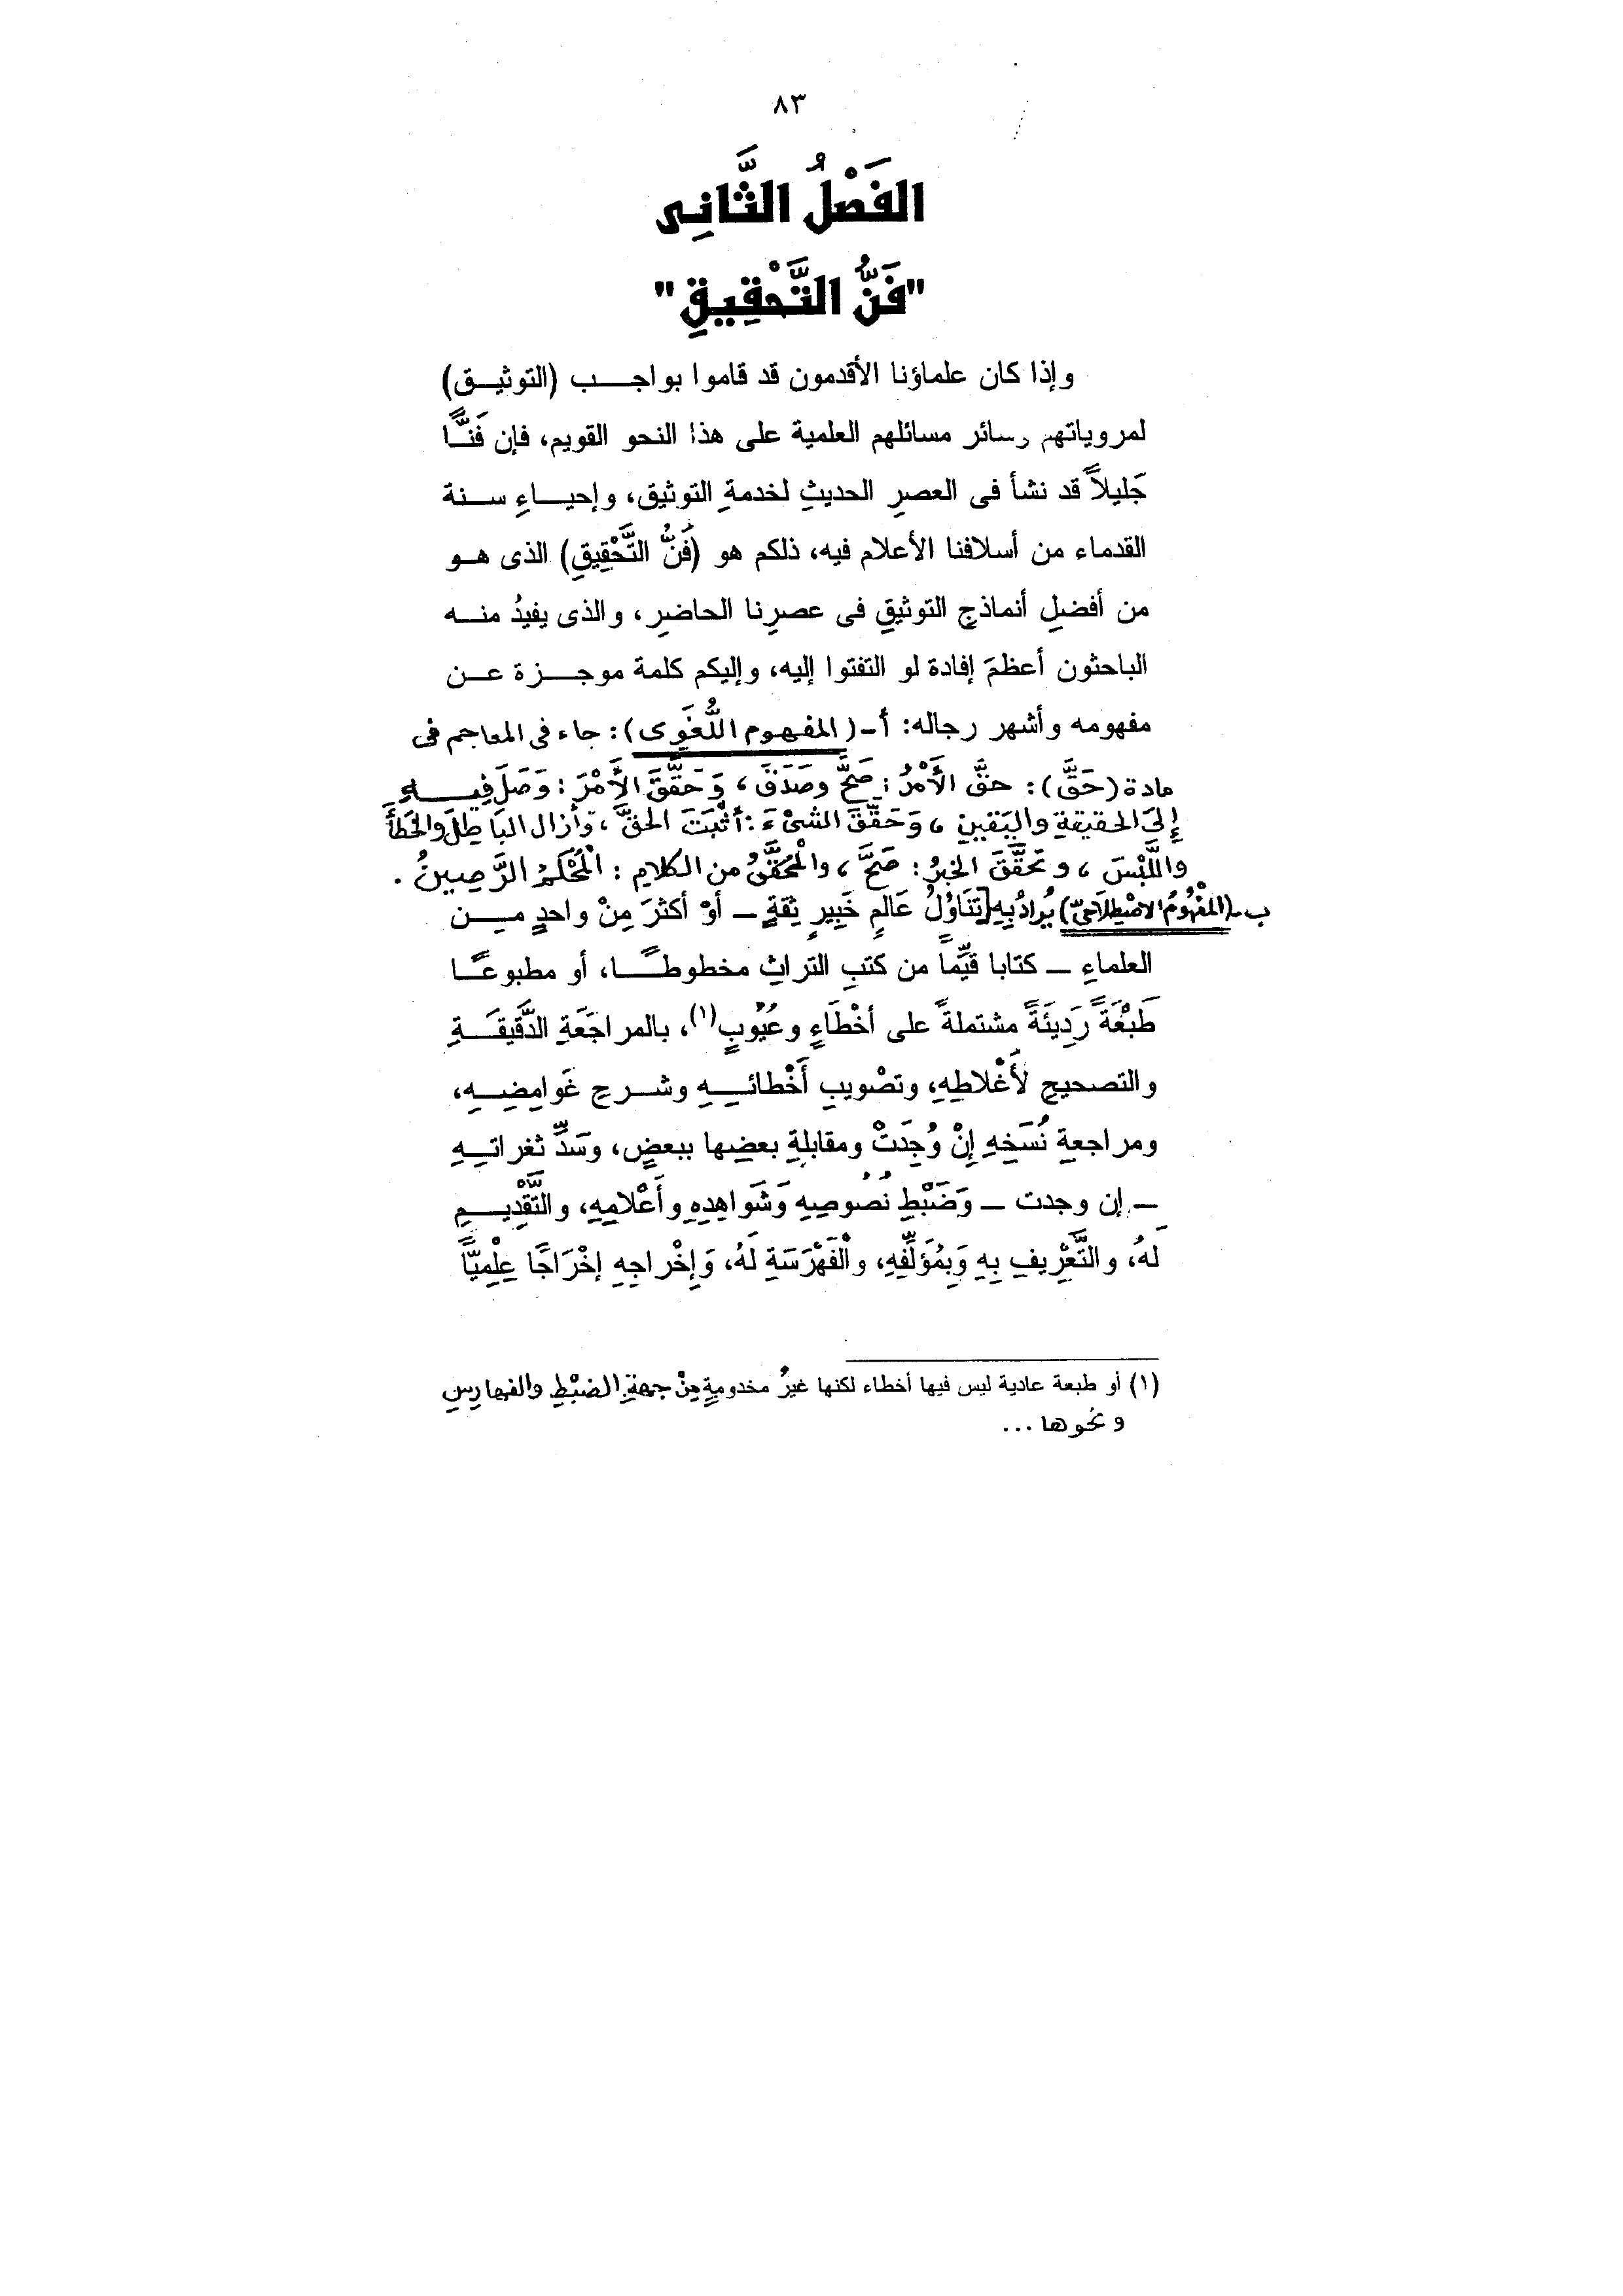 ٨٣
الفَصْلُ الثَّانِى
"فَنُّ التَّحْقِيقِ"
وإذا كان علماؤنا الأقدمون قد قاموا بواجب (التوثيق)
لمروياتهم وسائر مسائلهم العلمية على هذا النحو القويم، فإن فَنًّا
جَليلاً قد نشأ فى العصرِ الحديثِ لخدمةِ التوثيق، وإحياءِ سنة
القدماء من أسلافنا الأعلام فيه، ذلكم هو (فَنُّ التَّحْقِيقِ) الذى هو
من أفضلِ أنماذجِ التوثيقِ فى عصرِنا الحاضرِ، والذى يفيدُ منه
الباحثون أعظمَ إفادة لو التفتوا إليه، وإليكم كلمة موجزة عن
مفهومه وأشهر رجاله: أ-(المفهوم اللُّغَوِى): جاء فى المعاجم فى
مادة (حَقَّ): حقَّ الأَمْرُ: صَحَّ وصَدَقَ، وَحَقَّقَ الأَمْرَ: وَصَلَ فِيهِ
إِلَى الحقيقةِ واليَقينِ، وَحَقَّقَ الشىْءَ: أثْبَتَ الحقَّ، وَأزال البَاطِلَ والخَطَأَ
واللَّبْسَ، وتَحَقَّقَ الخبرُ: صَحَّ، والْمُحَقَّقُ من الكلامِ: الْمُحْكَمُ الرَّصِينُ.
ب-(المَفْهُومُ الاصْطِلَاحِىّ) يُرادُ بِهِ [تَنَاوُلُ عَالمٍ خَبِيرٍ ثِقةٍ – أوْ أكثرَ مِنْ واحدٍ مِن
العلماءِ – كتابا قيِّماً من كتبِ التراثِ مخطوطًا، أو مطبوعًا
طَبْعَةً رَدِيئَةً مشتملةً على أخْطَاءٍ وعُيُوبٍ(١)، بالمراجَعَةِ الدَّقيقَةِ
والتصحيحِ لأَغْلاطِهِ، وتصْويبِ أَخْطائِهِ وشرحِ غَوامِضِهِ،
ومراجعةِ نُسَخِهِ إنْ وُجِدَتْ ومقابلةِ بعضِها ببعضٍ، وسَدِّ ثغراتِهِ
– إن وجدت – وَضَبْطِ نُصُوصِهِ وَشَواهِدِهِ وأَعْلامِهِ، والتَّقْدِيمِ
لَهُ، والتَّعْرِيفِ بِهِ وَبِمُؤَلِّفِهِ، والْفَهْرَسَةِ لَهُ، وَإِخْراجِهِ إخْرَاجًا عِلْمِيًّا
(١) أو طبعة عادية ليس فيها أخطاء لكنها غيرُ مخدومةٍ مِنْ جهةِ الضبْطِ والفهارِسِ
ونحوها ...